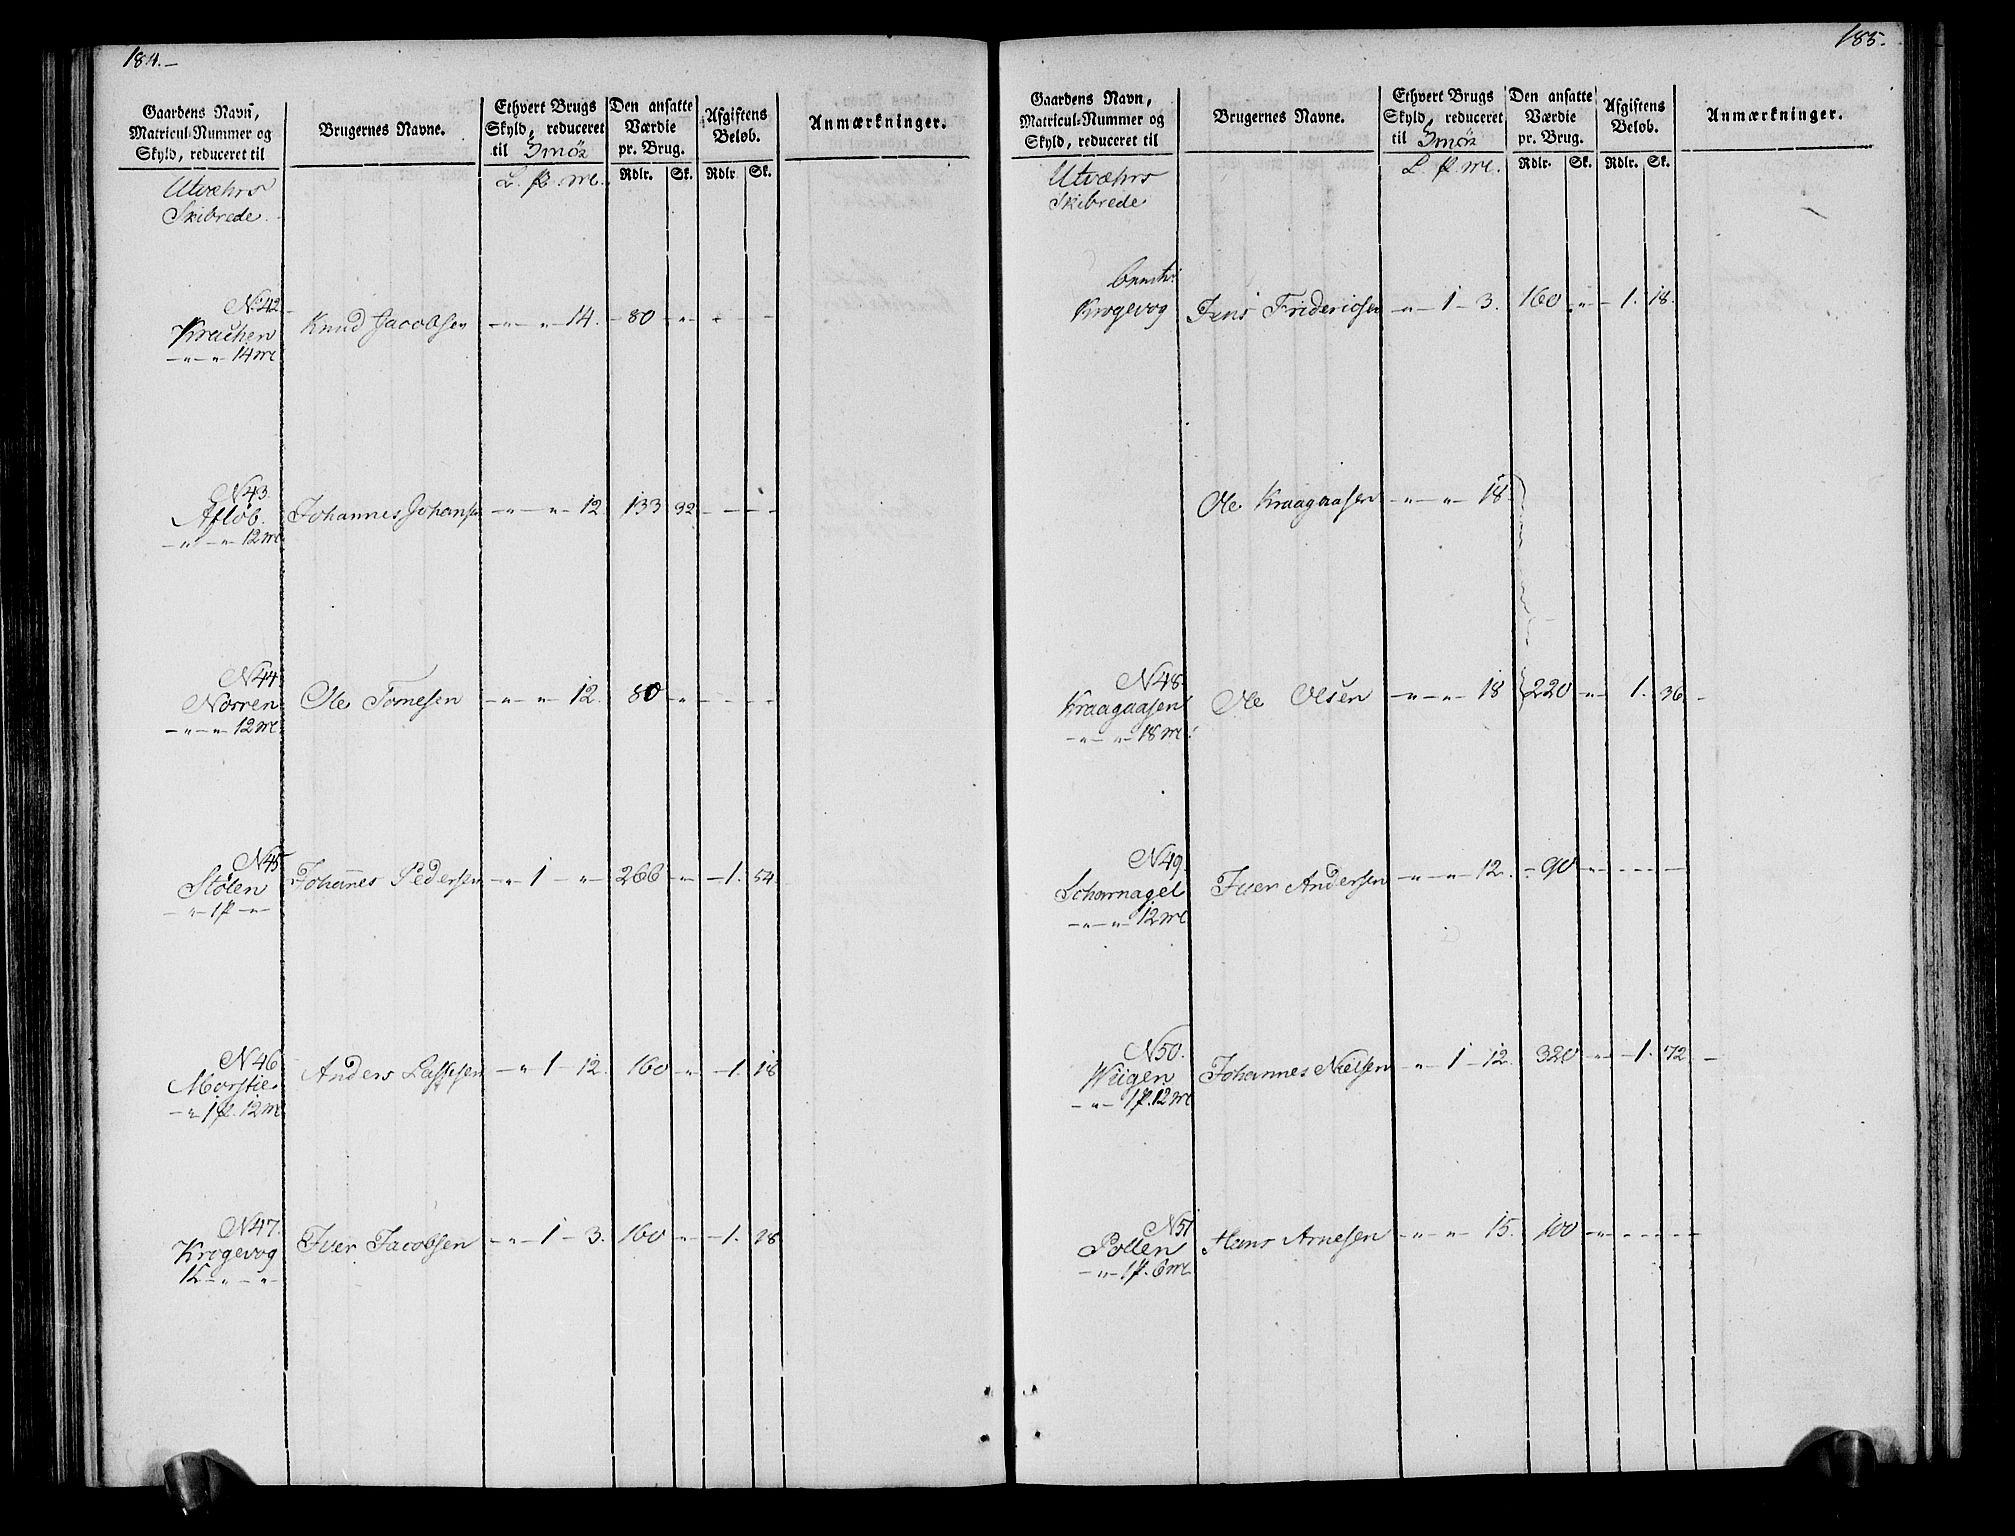 184.–
Gaardens Navn, Matricul-Nummer og Skyld, reduceret til | Brugernes Navne. | Ethvert Brugs Skyld, reduceret til Smör | Den ansatte Værdie pr. Brug. | Afgiftens Beløb. | Anmærkninger.
L. p. mk. | Rdlr. | Sk. | Rdlr. | Sk.
Utvæhrs
Skibrede
N. 42
Krachen Knud Jacobsen – " – " – 14. – 80 – " – – –
– " – " – 14 mk
N 43.
Afløb. Johannes Johansen – " – " – 12. 133 32 – – – –
– " – " – 12 mk
N 44.
Norren Ole Tomesen – " – " – 12. 80 – " – – – –
– " – " – 12 mk.
N 45
Stølen Johannes Pedersen – " – 1 – " – 266 – " – 1. 54
– " – 1 p – " –
N 46
Morstie. Anders Lassesen – " – 1 – 12. 160 – " – 1. 18
– " – 1 p. 12 mk
N 47.
Krogevog Iver Jacobsen – " – 1 – 3. 160 – " – 1. 18
1 L – " – "
185.
Gaardens Navn, Matricul-Nummer og Skyld, reduceret til | Brugernes Navne. | Ethvert Brugs Skyld, reduceret til Smör | Den ansatte Værdie pr. Brug. | Afgiftens Beløb. | Anmærkninger.
L. p. mk. | Rdlr. | Sk. | Rdlr. | Sk.
Utvæhrs
Skibrede
Krogevog Jens Fridericsen – " – 1 – 3. 160 – " – 1. 18.
Ole Kraagaasen – " – " – 18
N 48.
Kraagaasen Ole Olsen – " – " – 18 220 – " – 1. 36. –
– " – " – 18 mk.
N 49.
Scharnagel Iver Andersen – " – " – 12. – 90 – " – – – –
– " – " – 12 mk
N 50.
Wiigen Johannes Nielsen – " – 1 – 12. 320 – " – 1. 72 –
– " – 1 p. 12 mk
N 51
Pollen Hans Arnesen – " – " – 15. 100 – " – – – –
– " – 1 p. 6 mk.